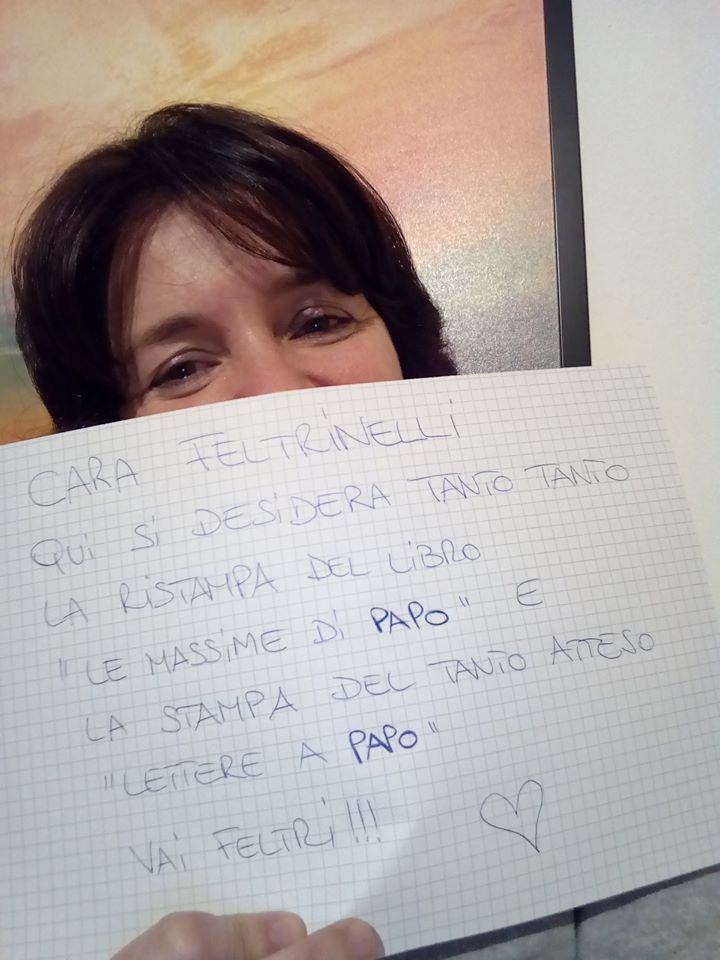 CARA FELTRINELLI
QUI SI DESIDERA TANTO TANTO
LA RISTAMPA DEL LIBRO
"LE MASSIME DI PAPO" E
LA STAMPA DEL TANTO ATTESO
"LETTERE A PAPO"
VAI FELTRI!!!